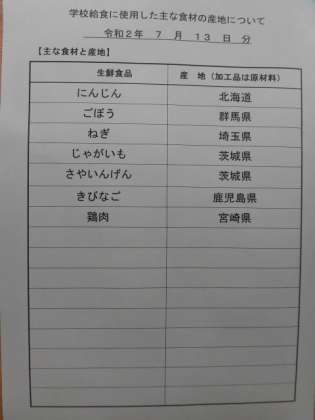 学校給食に使用した主な食材の産地について
令和２年　７　月　１３　日　分
【主な食材と産地】
生鮮食品　産　地（加工品は原材料）
にんじん　北海道
ごぼう　群馬県
ねぎ　埼玉県
じゃがいも　茨城県
さやいんげん　茨城県
きびなご　鹿児島県
鶏肉　宮崎県